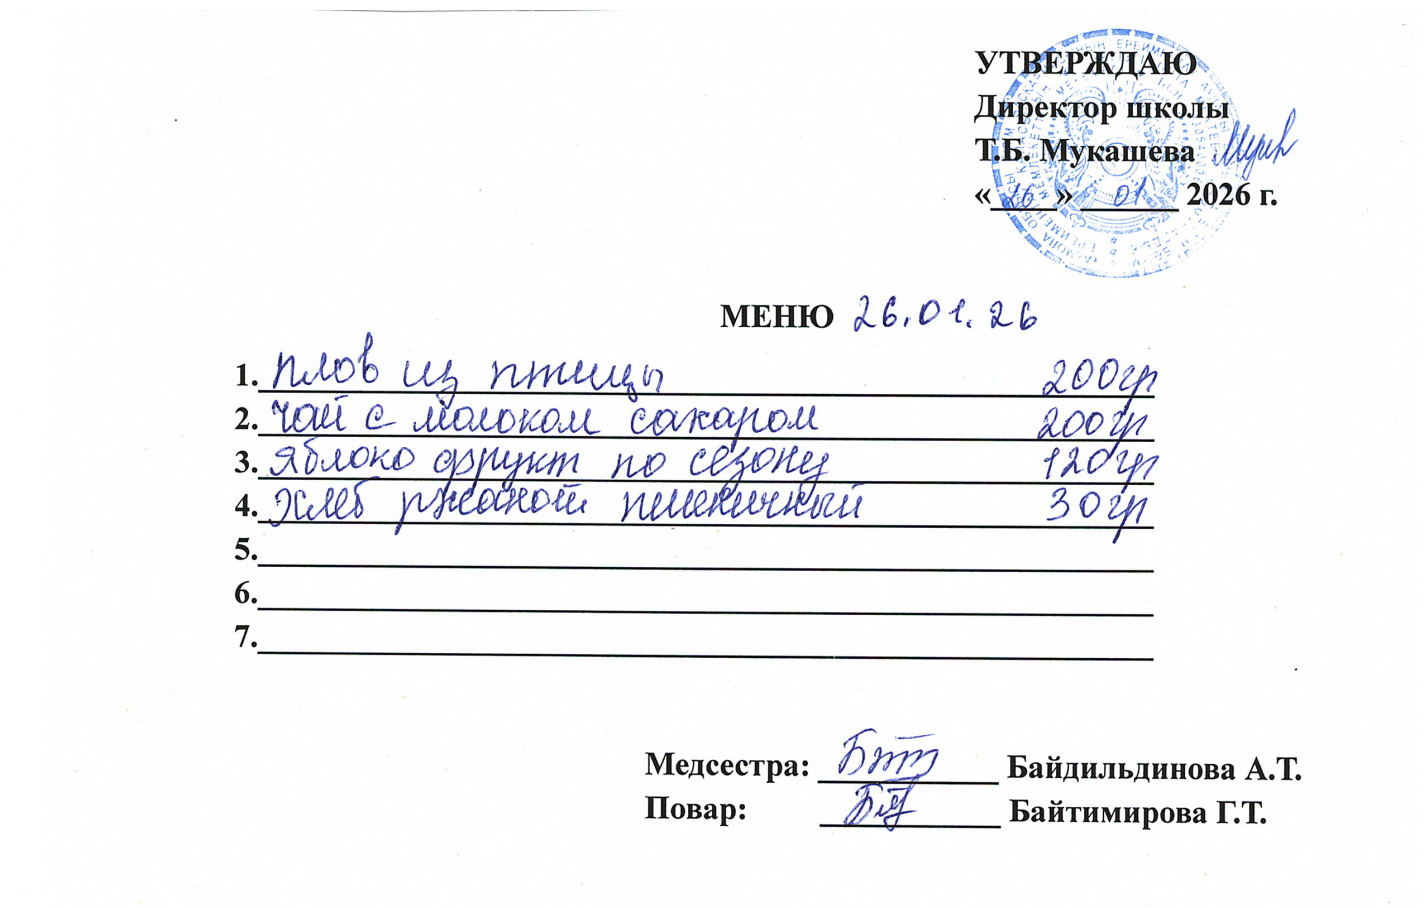 УТВЕРЖДАЮ
Директор школы
Т.Б. Мукашева
«26» 01 2026 г.
МЕНЮ 26.01.26
1. Плов из птицы 200гр
2. Чай с молоком сахаром 200гр
3. Яблоко фрукт по сезону 120гр
4. Хлеб ржаной пшеничный 30гр
5.
6.
7.
Медсестра: Байдильдинова А.Т.
Повар: Байтимирова Г.Т.